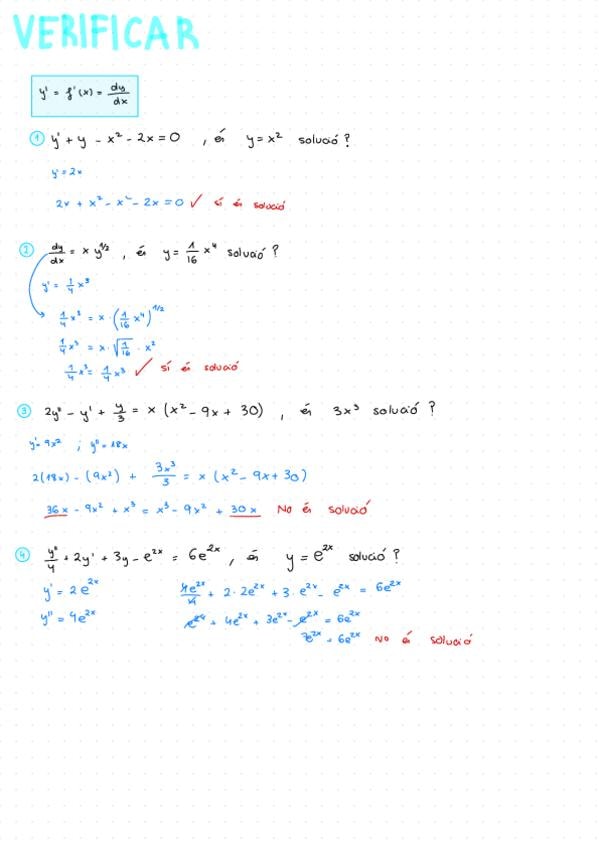 VERIFICAR
y' = f'(x) = dy/dx
① y' + y - x² - 2x = 0 , és y = x² solució?
y' = 2x
2x + x² - x² - 2x = 0 ✓ sí és solució
② dy/dx = x y^1/2 , és y = 1/16 x⁴ solució?
y' = 1/4 x³
1/4 x³ = x · (1/16 x⁴)^1/2
1/4 x³ = x · √1/16 · x²
1/4 x³ = 1/4 x³ ✓ sí és solució
③ 2y'' - y' + y/3 = x (x² - 9x + 30) , és 3x³ solució?
y' = 9x² ; y'' = 18x
2(18x) - (9x²) + 3x³/3 = x (x² - 9x + 30)
36x - 9x² + x³ = x³ - 9x² + 30x No és solució
④ y''/4 + 2y' + 3y - e^2x = 6e^2x , és y = e^2x solució?
y' = 2e^2x
4e^2x/4 + 2 · 2e^2x + 3 · e^2x - e^2x = 6e^2x
y'' = 4e^2x
e^2x + 4e^2x + 3e^2x - e^2x = 6e^2x
7e^2x = 6e^2x No és solució